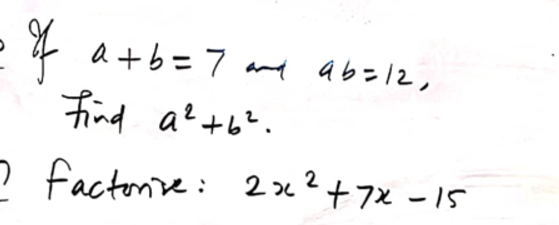 If a + b = 7 and ab = 12,
Find a² + b².
Factorise: 2x² + 7x - 15